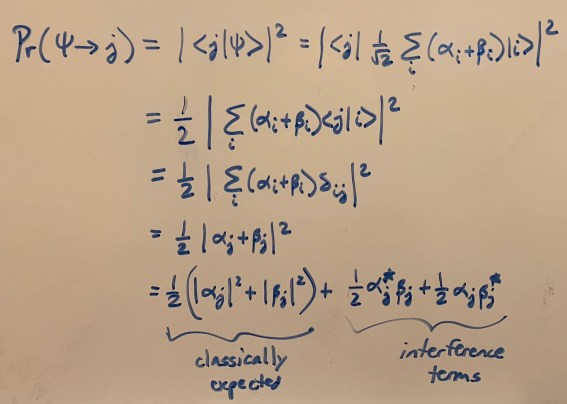 Pr(Ψ→j) = |<j|Ψ>|² = |<j| 1/√2 Σ_i (α_i+β_i)|i>|²
= 1/2 | Σ_i (α_i+β_i)<j|i>|²
= 1/2 | Σ_i (α_i+β_i) δ_ij |²
= 1/2 |α_j+β_j|²
= 1/2 (|α_j|² + |β_j|²) + 1/2 α_j* β_j + 1/2 α_j β_j*
classically expected
interference terms